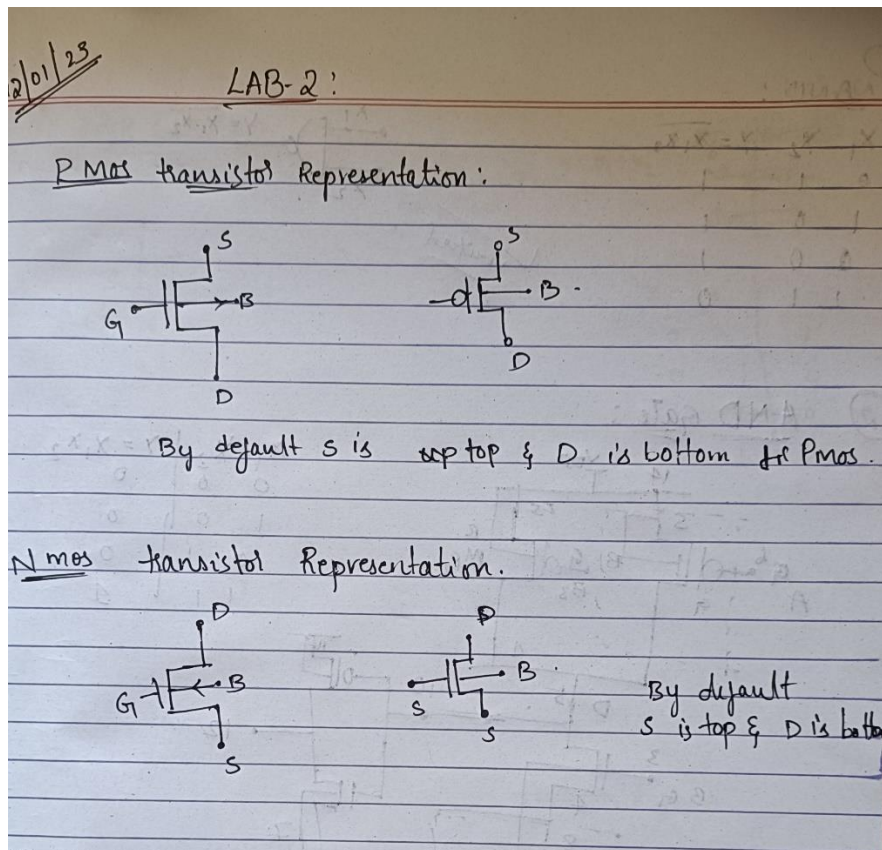 2/01/23
LAB-2:
P Mos transistor Representation:
S
S
G
B
B
D
D
By default S is top & D is bottom fr Pmos.
N mos transistor Representation.
D
D
G
B
B
S
S
S
By default
S is top & D is botto